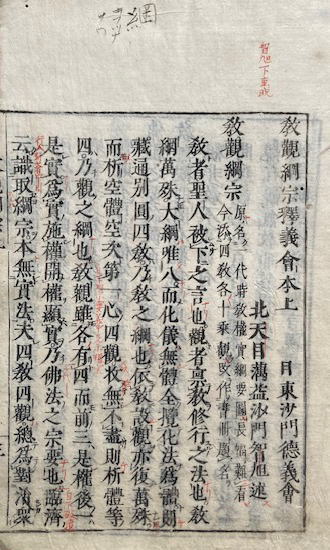 綱
智旭下至或
教觀綱宗釋義會本上
日東沙門德義會
北天目蕅益沙門智旭述
教觀綱宗
原名一代時教權實綱要圖長幅難看
今添四教各十乘觀改作書冊題名
教者聖人被下之言也觀者稟教修行之法也教
網萬殊大綱唯八而化儀無體全攬化法為體則
藏通別圓四教乃教之綱也依教設觀亦復萬殊
而析空體空次第一心四觀收無不盡則析體等
四乃觀之綱也教觀雖各有四而前三是權後一
是實為實施權開權顯實乃佛法之宗要也臨濟
云識取綱宗本無實法夫四教四觀總為對治眾